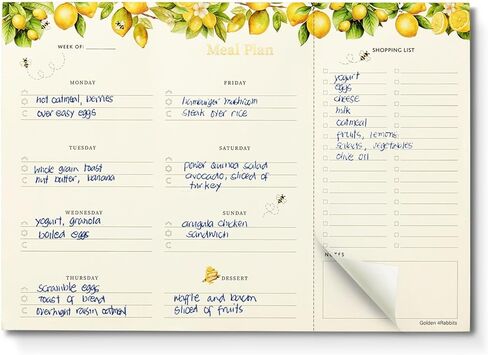 Meal Plan
WEEK OF:
MONDAY
hot oatmeal, berries
over easy eggs
TUESDAY
whole grain toast
nut butter, banana
WEDNESDAY
yogurt, granola
boiled eggs
THURSDAY
scramble eggs
Toast of bread
overnight raisin oatmeal
FRIDAY
hamburger mushroom
steak over rice
SATURDAY
power quinoa salad
avocado, sliced of
turkey
SUNDAY
arugula chicken
sandwich
DESSERT
Waffle and bacon
sliced of fruits
SHOPPING LIST
yogurt
eggs
cheese
milk
oatmeal
fruits, lemons
salads, vegetables
olive oil
NOTES
Golden 4Rabbits